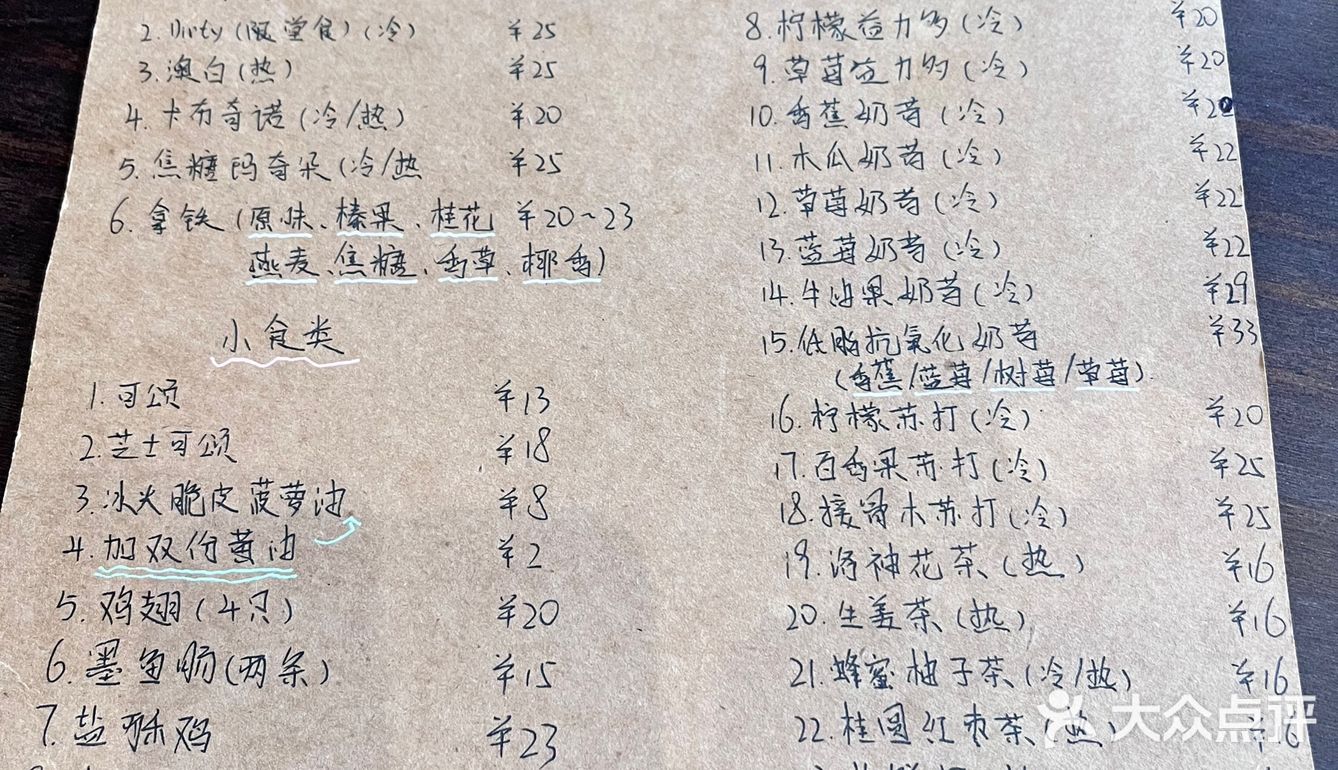 2. Dirty (限堂食) (冷) ¥25
3. 澳白 (热) ¥25
4. 卡布奇诺 (冷/热) ¥20
5. 焦糖玛奇朵 (冷/热 ¥25
6. 拿铁 (原味、榛果、桂花 ¥20~23
燕麦、焦糖、香草、椰香)
小食类
1. 可颂 ¥13
2. 芝士可颂 ¥18
3. 冰火脆皮菠萝油 ¥8
4. 加双份黄油 ¥2
5. 鸡翅 (4只) ¥20
6. 墨鱼肠 (两条) ¥15
7. 盐酥鸡 ¥23
8. 柠檬益力多 (冷) ¥20
9. 草莓益力多 (冷) ¥20
10. 香蕉奶昔 (冷) ¥20
11. 木瓜奶昔 (冷) ¥22
12. 草莓奶昔 (冷) ¥22
13. 蓝莓奶昔 (冷) ¥22
14. 牛油果奶昔 (冷) ¥29
15. 低脂抗氧化奶昔 ¥33
(香蕉/蓝莓/树莓/草莓)
16. 柠檬苏打 (冷) ¥20
17. 百香果苏打 (冷) ¥25
18. 接骨木苏打 (冷) ¥25
19. 洛神花茶 (热) ¥16
20. 生姜茶 (热) ¥16
21. 蜂蜜柚子茶 (冷/热) ¥16
22. 桂圆红枣茶 (热) ¥16
大众点评